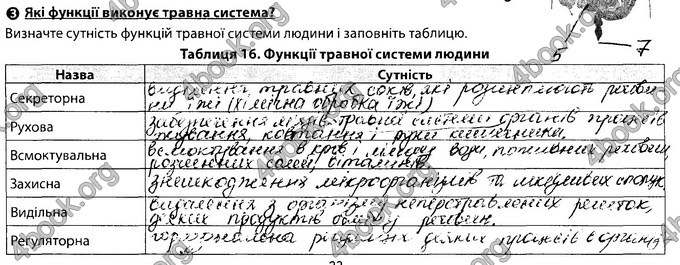 3 Які функції виконує травна система?
Визначте сутність функцій травної системи людини і заповніть таблицю.
5 7
Таблиця 16. Функції травної системи людини
Назва Сутність
Секреторна виділення травних соків, які розщеплюють речовини
їжі (хімічна обробка їжі)
Рухова забезпечення м'язів травної системи органів процесів
жування, ковтання і рухи кишечника.
Всмоктувальна всмоктування в кров і лімфу води, поживних речовин,
розчинних солей, вітамінів
Захисна знешкодження мікроорганізмів та шкідливих сполук
Видільна видалення з організму неперетравлених решток,
деяких продуктів обміну речовин.
Регуляторна гормональна регуляція деяких процесів в організмі
4book.org